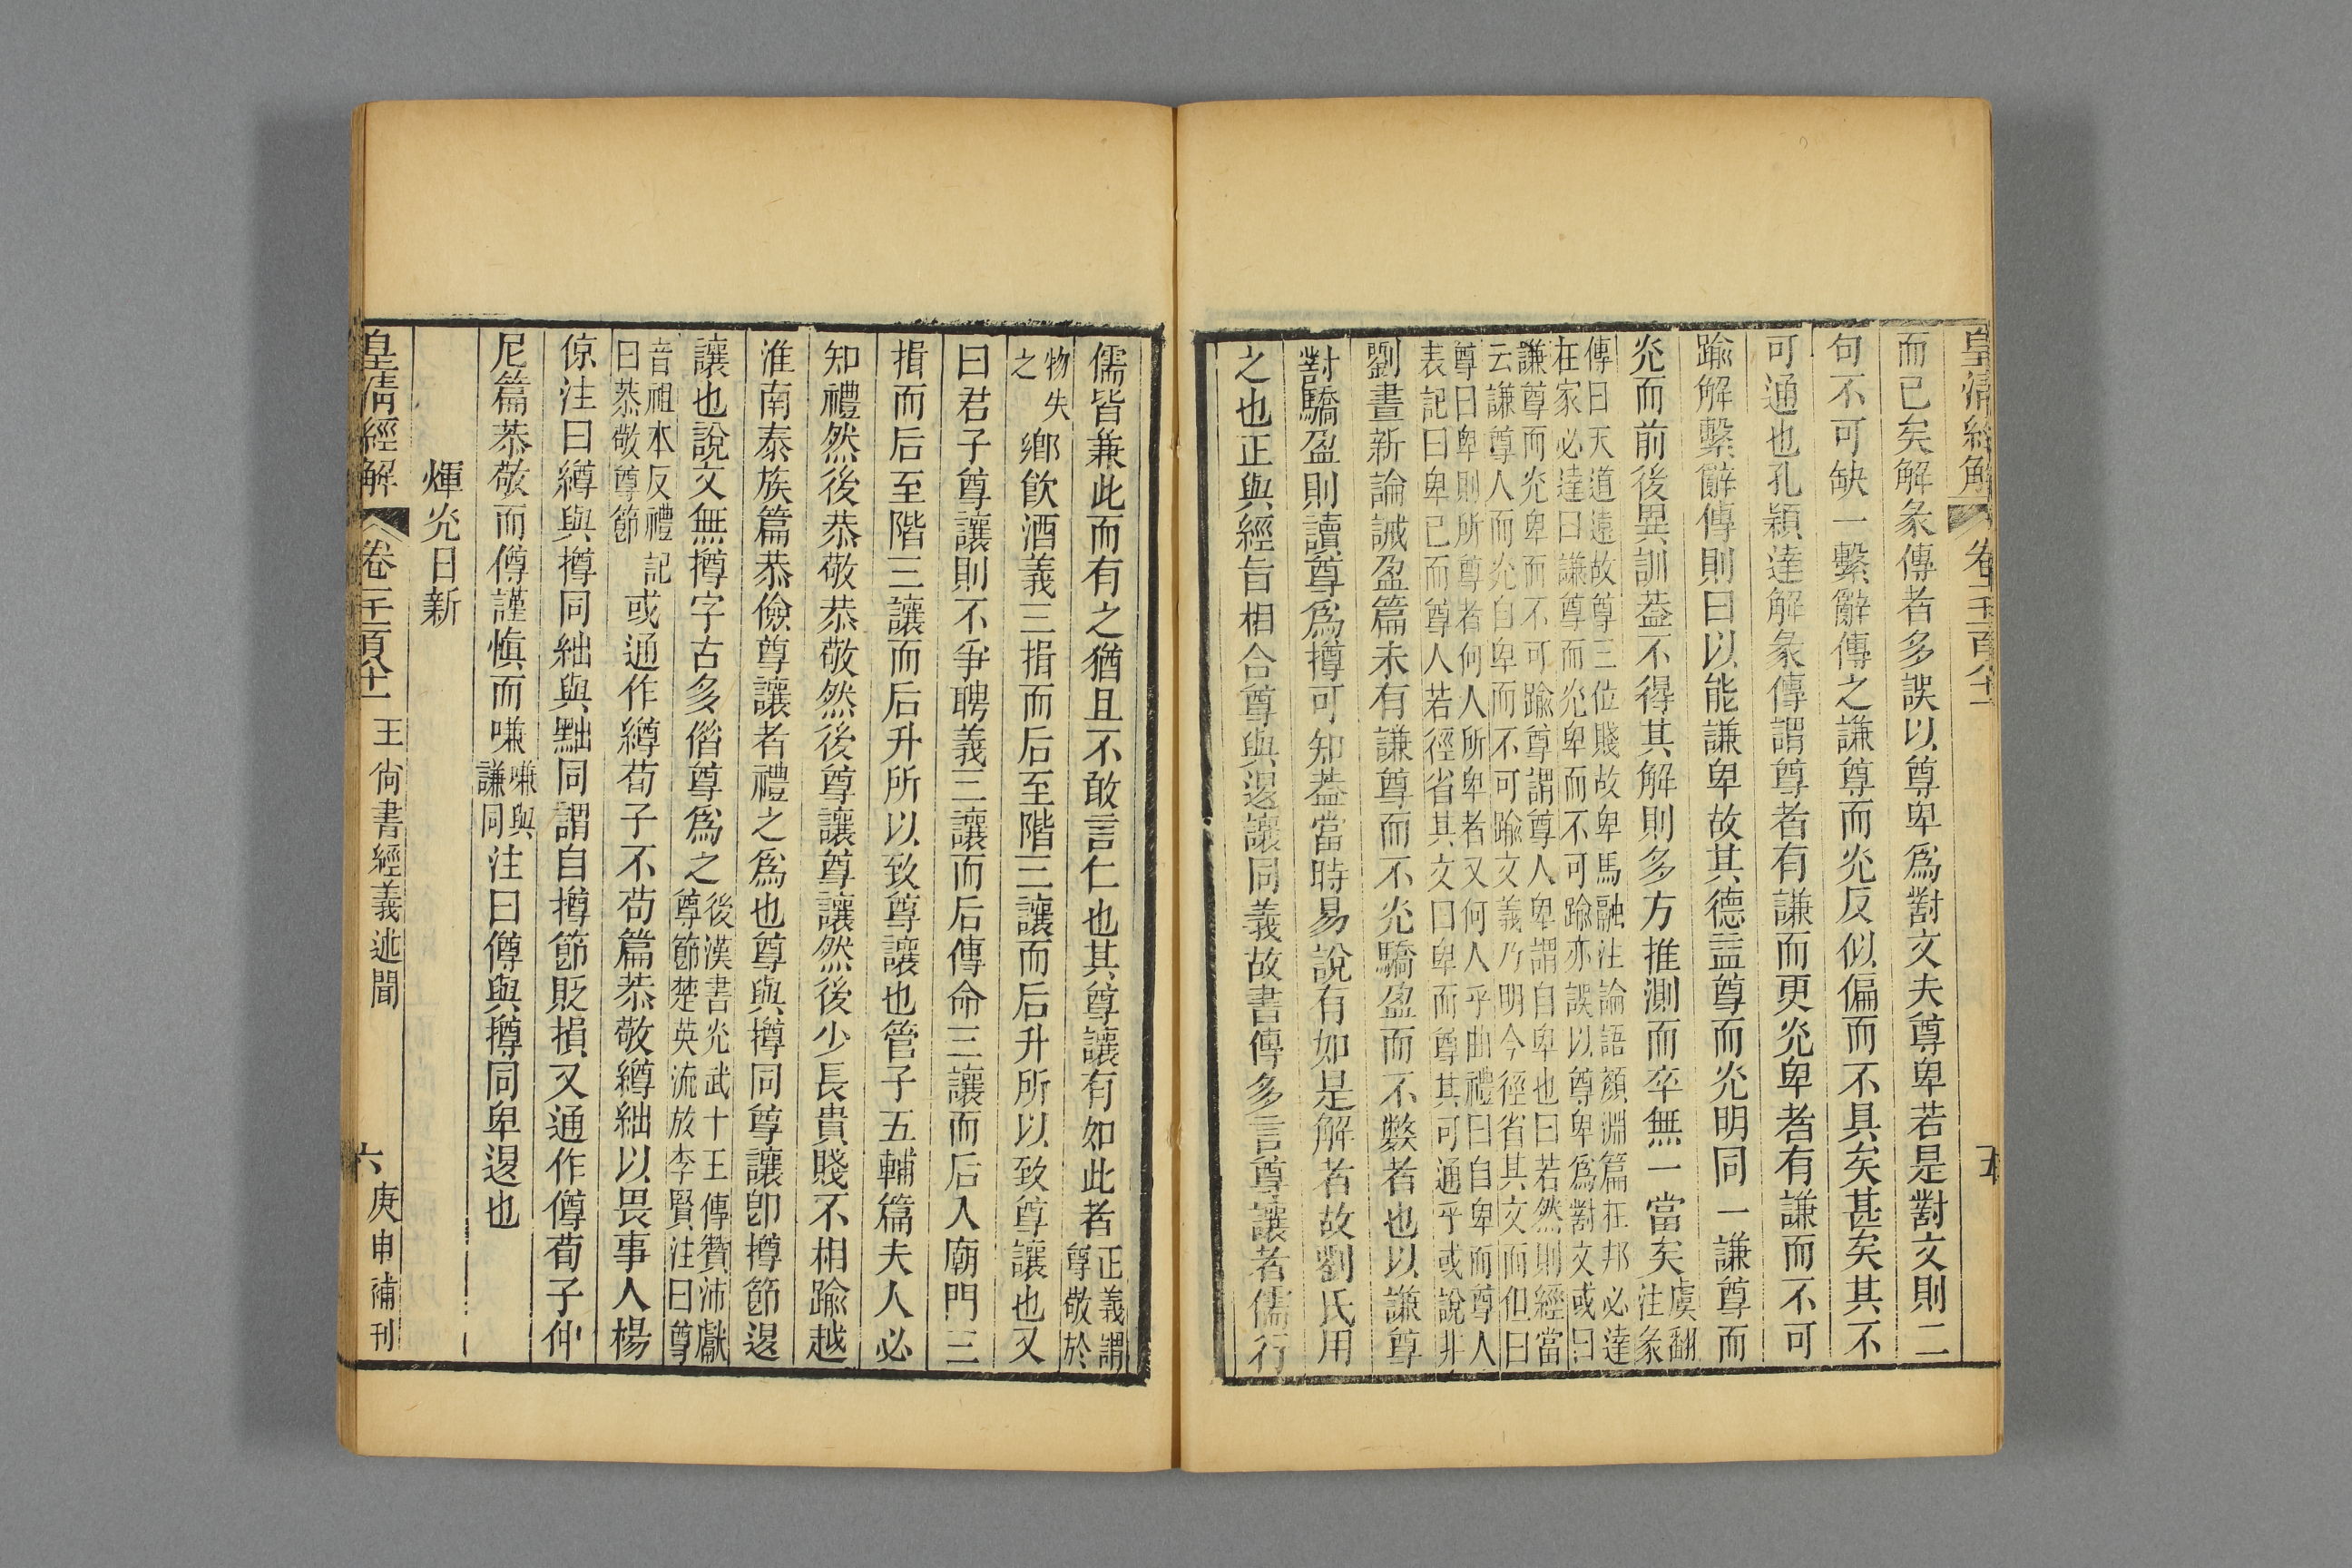 皇清經解
卷一千一百八十一
五
而已矣解彖傳者多誤以尊卑爲對文夫尊卑若是對文則二
句不可缺一繫辭傳之謙尊而光反似偏而不具矣甚矣其不
可通也孔穎達解彖傳謂尊者有謙而更光卑者有謙而不可
踰解繫辭傳則曰以能謙卑故其德益尊而光明同一謙尊而
光而前後異訓葢不得其解則多方推測而卒無一當矣虞翻
注彖
傳曰天道遠故尊三位賤故卑馬融注論語顏淵篇在邦必達
在家必達曰謙尊而光卑而不可踰亦誤以尊卑爲對文或曰
謙尊而光卑而不可踰尊謂尊人卑謂自卑也曰若然則經當
云謙尊人而光自卑而不可踰文義乃明今徑省其文而但曰
尊曰卑則所尊者何人所卑者又何人乎曲禮曰自卑而尊人
表記曰卑己而尊人若徑省其文曰卑而尊其可通乎或說非
劉晝新論誡盈篇未有謙尊而不光驕盈而不斃者也以謙尊
對驕盈則讀尊爲撙可知葢當時易說有如是解者故劉氏用
之也正與經旨相合尊與退讓同義故書傳多言尊讓者儒行
儒皆兼此而有之猶且不敢言仁也其尊讓有如此者正義謂
尊敬於
物失
之鄉飲酒義三揖而后至階三讓而后升所以致尊讓也又
曰君子尊讓則不爭聘義三讓而后傳命三讓而后入廟門三
揖而后至階三讓而后升所以致尊讓也管子五輔篇夫人必
知禮然後恭敬恭敬然後尊讓尊讓然後少長貴賤不相踰越
淮南泰族篇恭儉尊讓者禮之爲也尊與撙同尊讓卽撙節退
讓也說文無撙字古多借尊爲之後漢書光武十王傳贊沛獻
尊節楚英流放李賢注曰尊
音祖本反禮記
曰恭敬尊節或通作繜荀子不苟篇恭敬繜絀以畏事人楊
倞注曰繜與撙同絀與黜同謂自撙節貶損又通作僔荀子仲
尼篇恭敬而僔謹愼而嗛嗛與
謙同注曰僔與撙同卑退也
煇光日新
皇清經解
卷一千一百八十一
王尚書經義述聞
六
庚申補刊